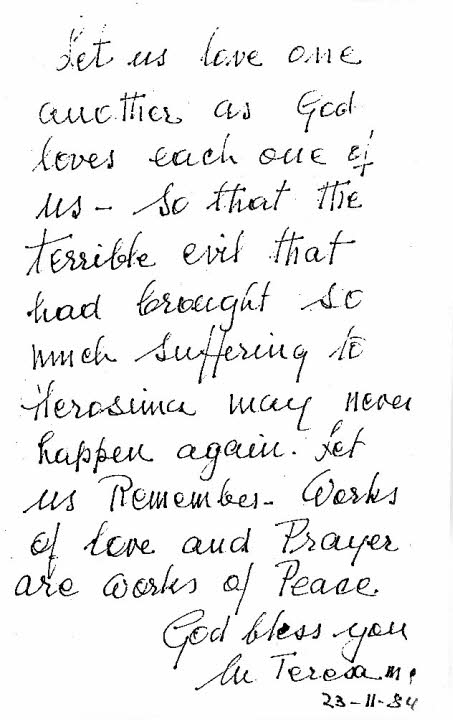 Let us love one
another as God
loves each one of
us - So that the
terrible evil that
had brought so
much suffering to
Herosima may never
happen again. Let
us Remember - Works
of love and Prayer
are works of Peace.
God bless you
lu Teresa m.c
23-11-84